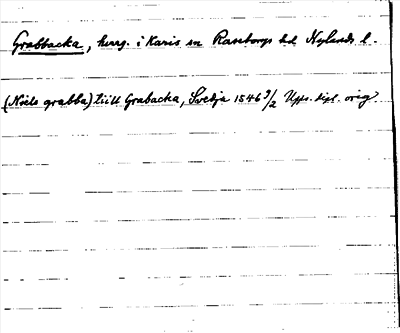 Grabbacka, herrg. i Karis sn Raseborgs hd Nylands l.
(Niels grabbe) tiill Grabacka, Svetja 1546 9/2 Upps. dipl. orig.